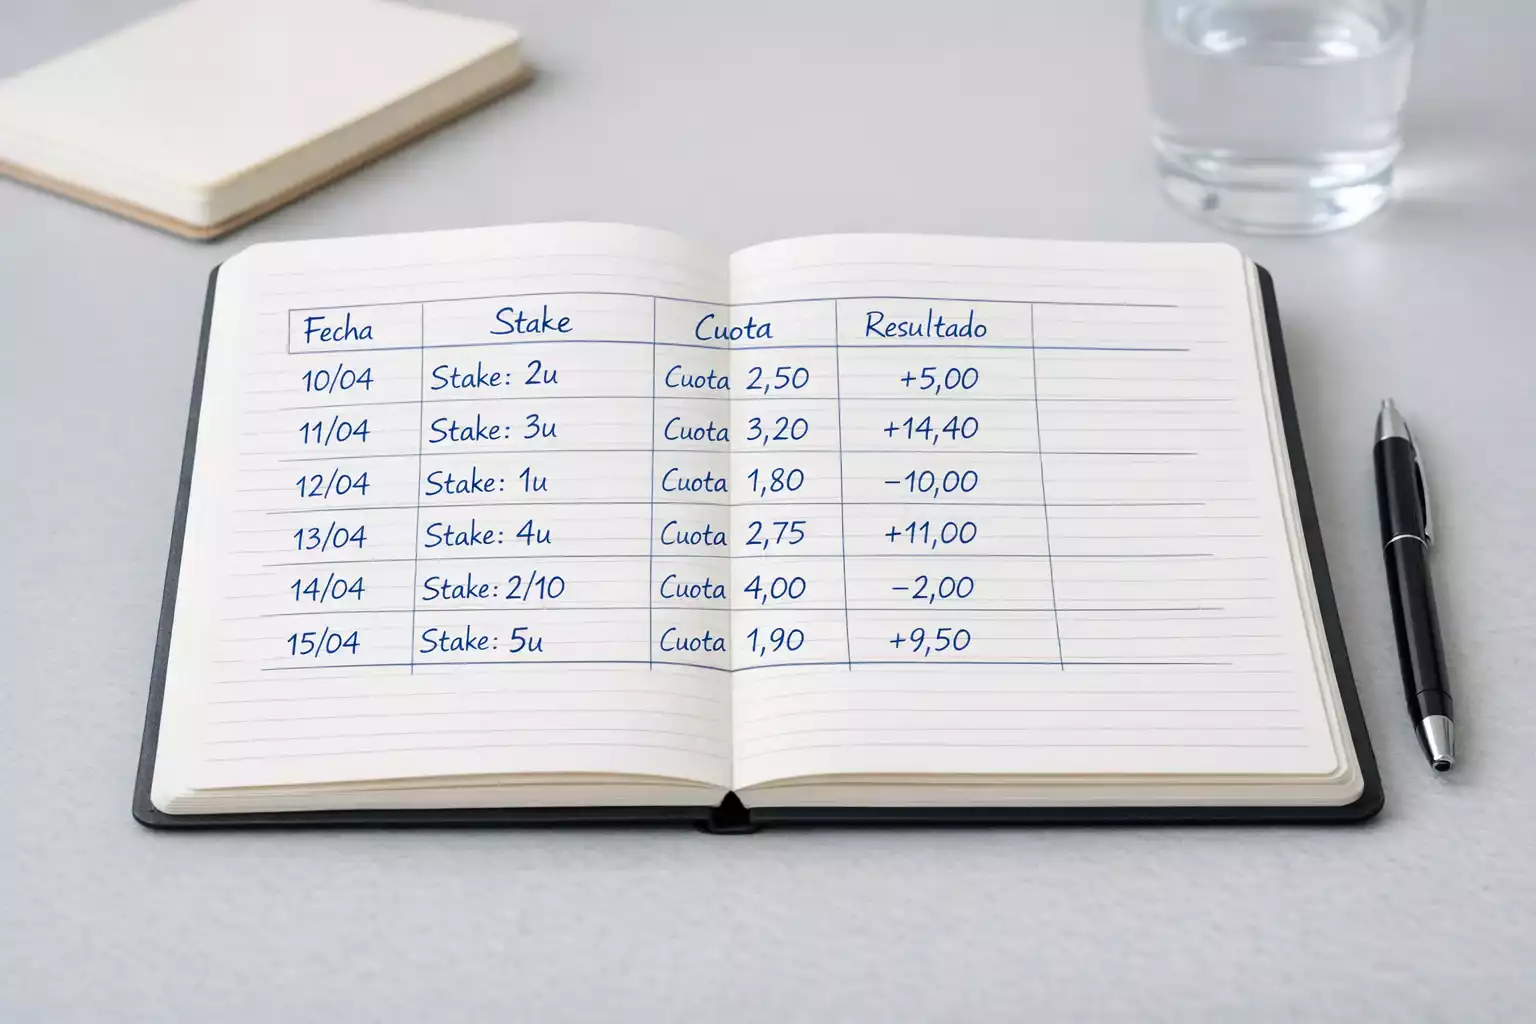 Fecha Stake Cuota Resultado
10/04 Stake: 2u Cuota 2,50 +5,00
11/04 Stake: 3u Cuota 3,20 +14,40
12/04 Stake: 1u Cuota 1,80 −10,00
13/04 Stake: 4u Cuota 2,75 +11,00
14/04 Stake: 2/10 Cuota 4,00 −2,00
15/04 Stake: 5u Cuota 1,90 +9,50